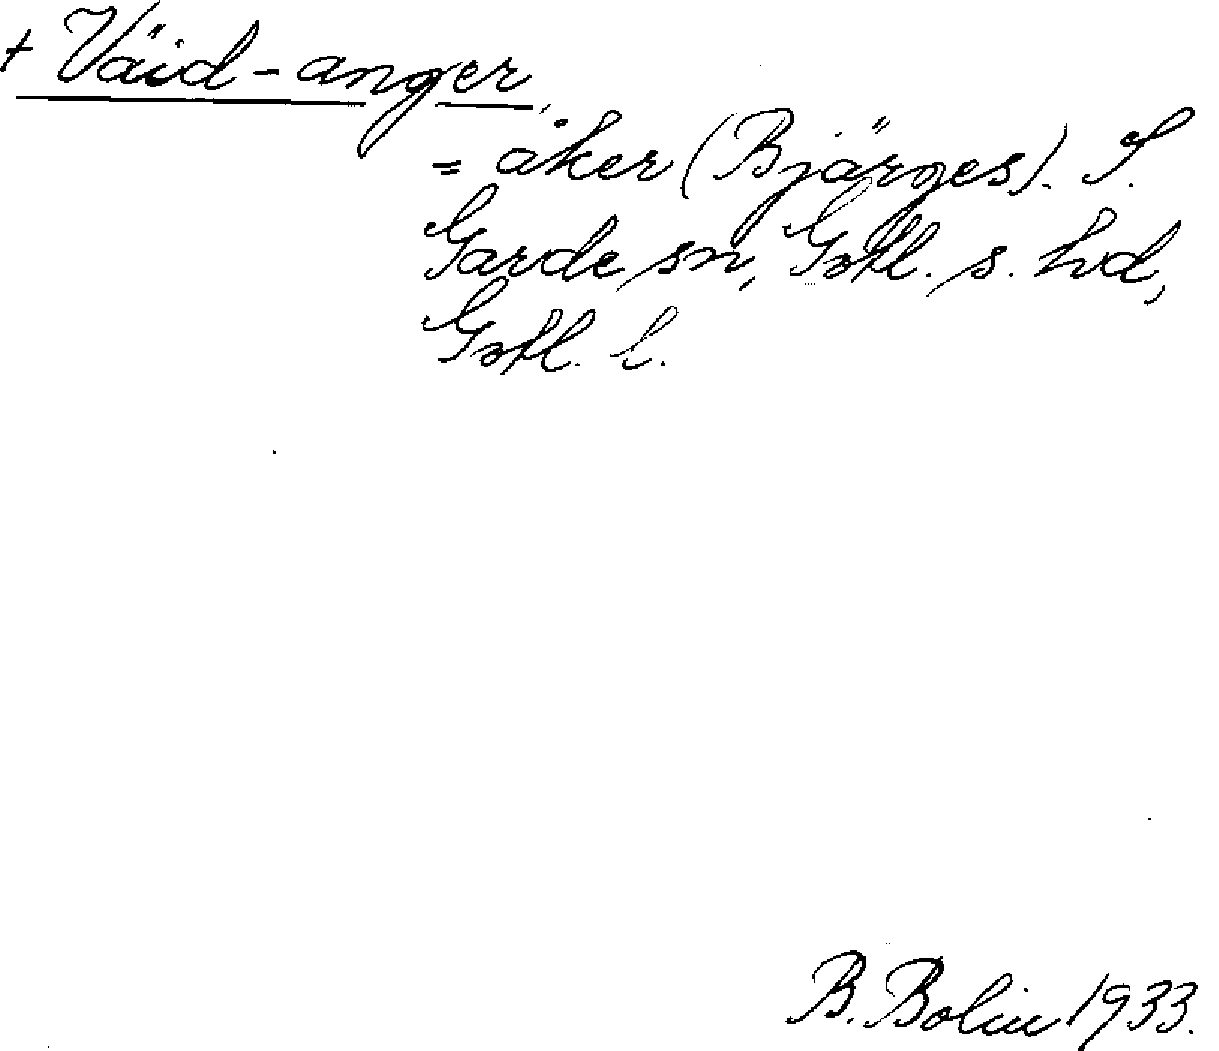 + Väid-anger,
= åker (Bjärges). S.
Garde sn, Gotl. s. hd,
Gotl. l.
B. Bolin 1933.